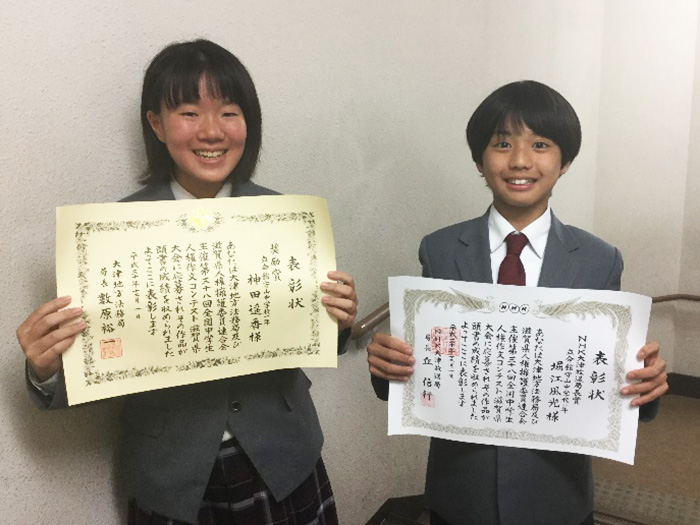 表彰状
奨励賞
立命館守山中学校一年
神田遥香様
あなたは大津地方法務局及び
滋賀県人権擁護委員連合会
主催第三十八回全国中学生
人権作文コンテスト滋賀県
大会に応募されその作品が
頭書の成績を収められました
よってここに表彰します
平成三十年
大津地方法務局
局長 數原裕一
NHK
表彰状
NHK大津放送局長賞
立命館守山中学校一年
堀江風光様
あなたは大津地方法務局及び
滋賀県人権擁護委員連合会
主催第三十八回全国中学生
人権作文コンテスト滋賀県
大会に応募されその作品が
頭書の成績を収められました
よってここに表彰します
平成三十年
NHK大津放送局
局長 立 信行